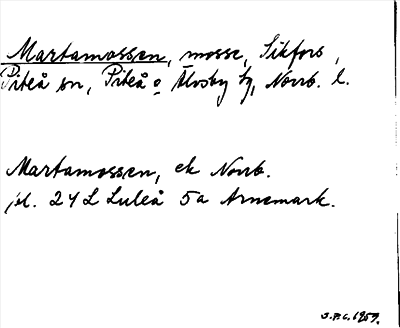 Martamossen, mosse, Sikfors,
Piteå sn, Piteå o Älvsby tg, Norrb. l.
Martamossen, ek Norrb.
bl. 24 L Luleå 5a Arnemark.
J.P.C. 1959.